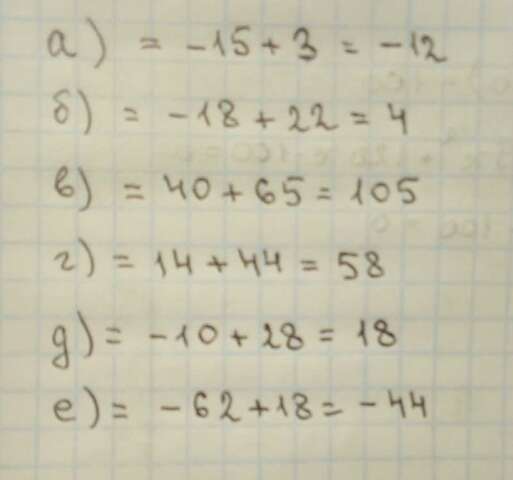 а) = -15 + 3 = -12
б) = -18 + 22 = 4
в) = 40 + 65 = 105
г) = 14 + 44 = 58
д) = -10 + 28 = 18
е) = -62 + 18 = -44